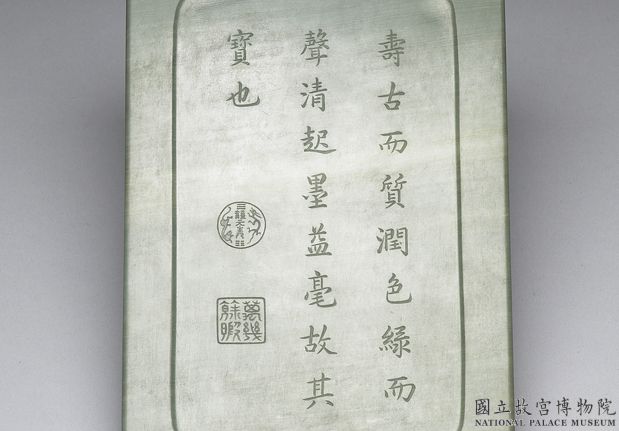 壽古而質潤色綠而
聲清起墨益毫故其
寶也
萬幾餘暇
國立故宮博物院
NATIONAL PALACE MUSEUM